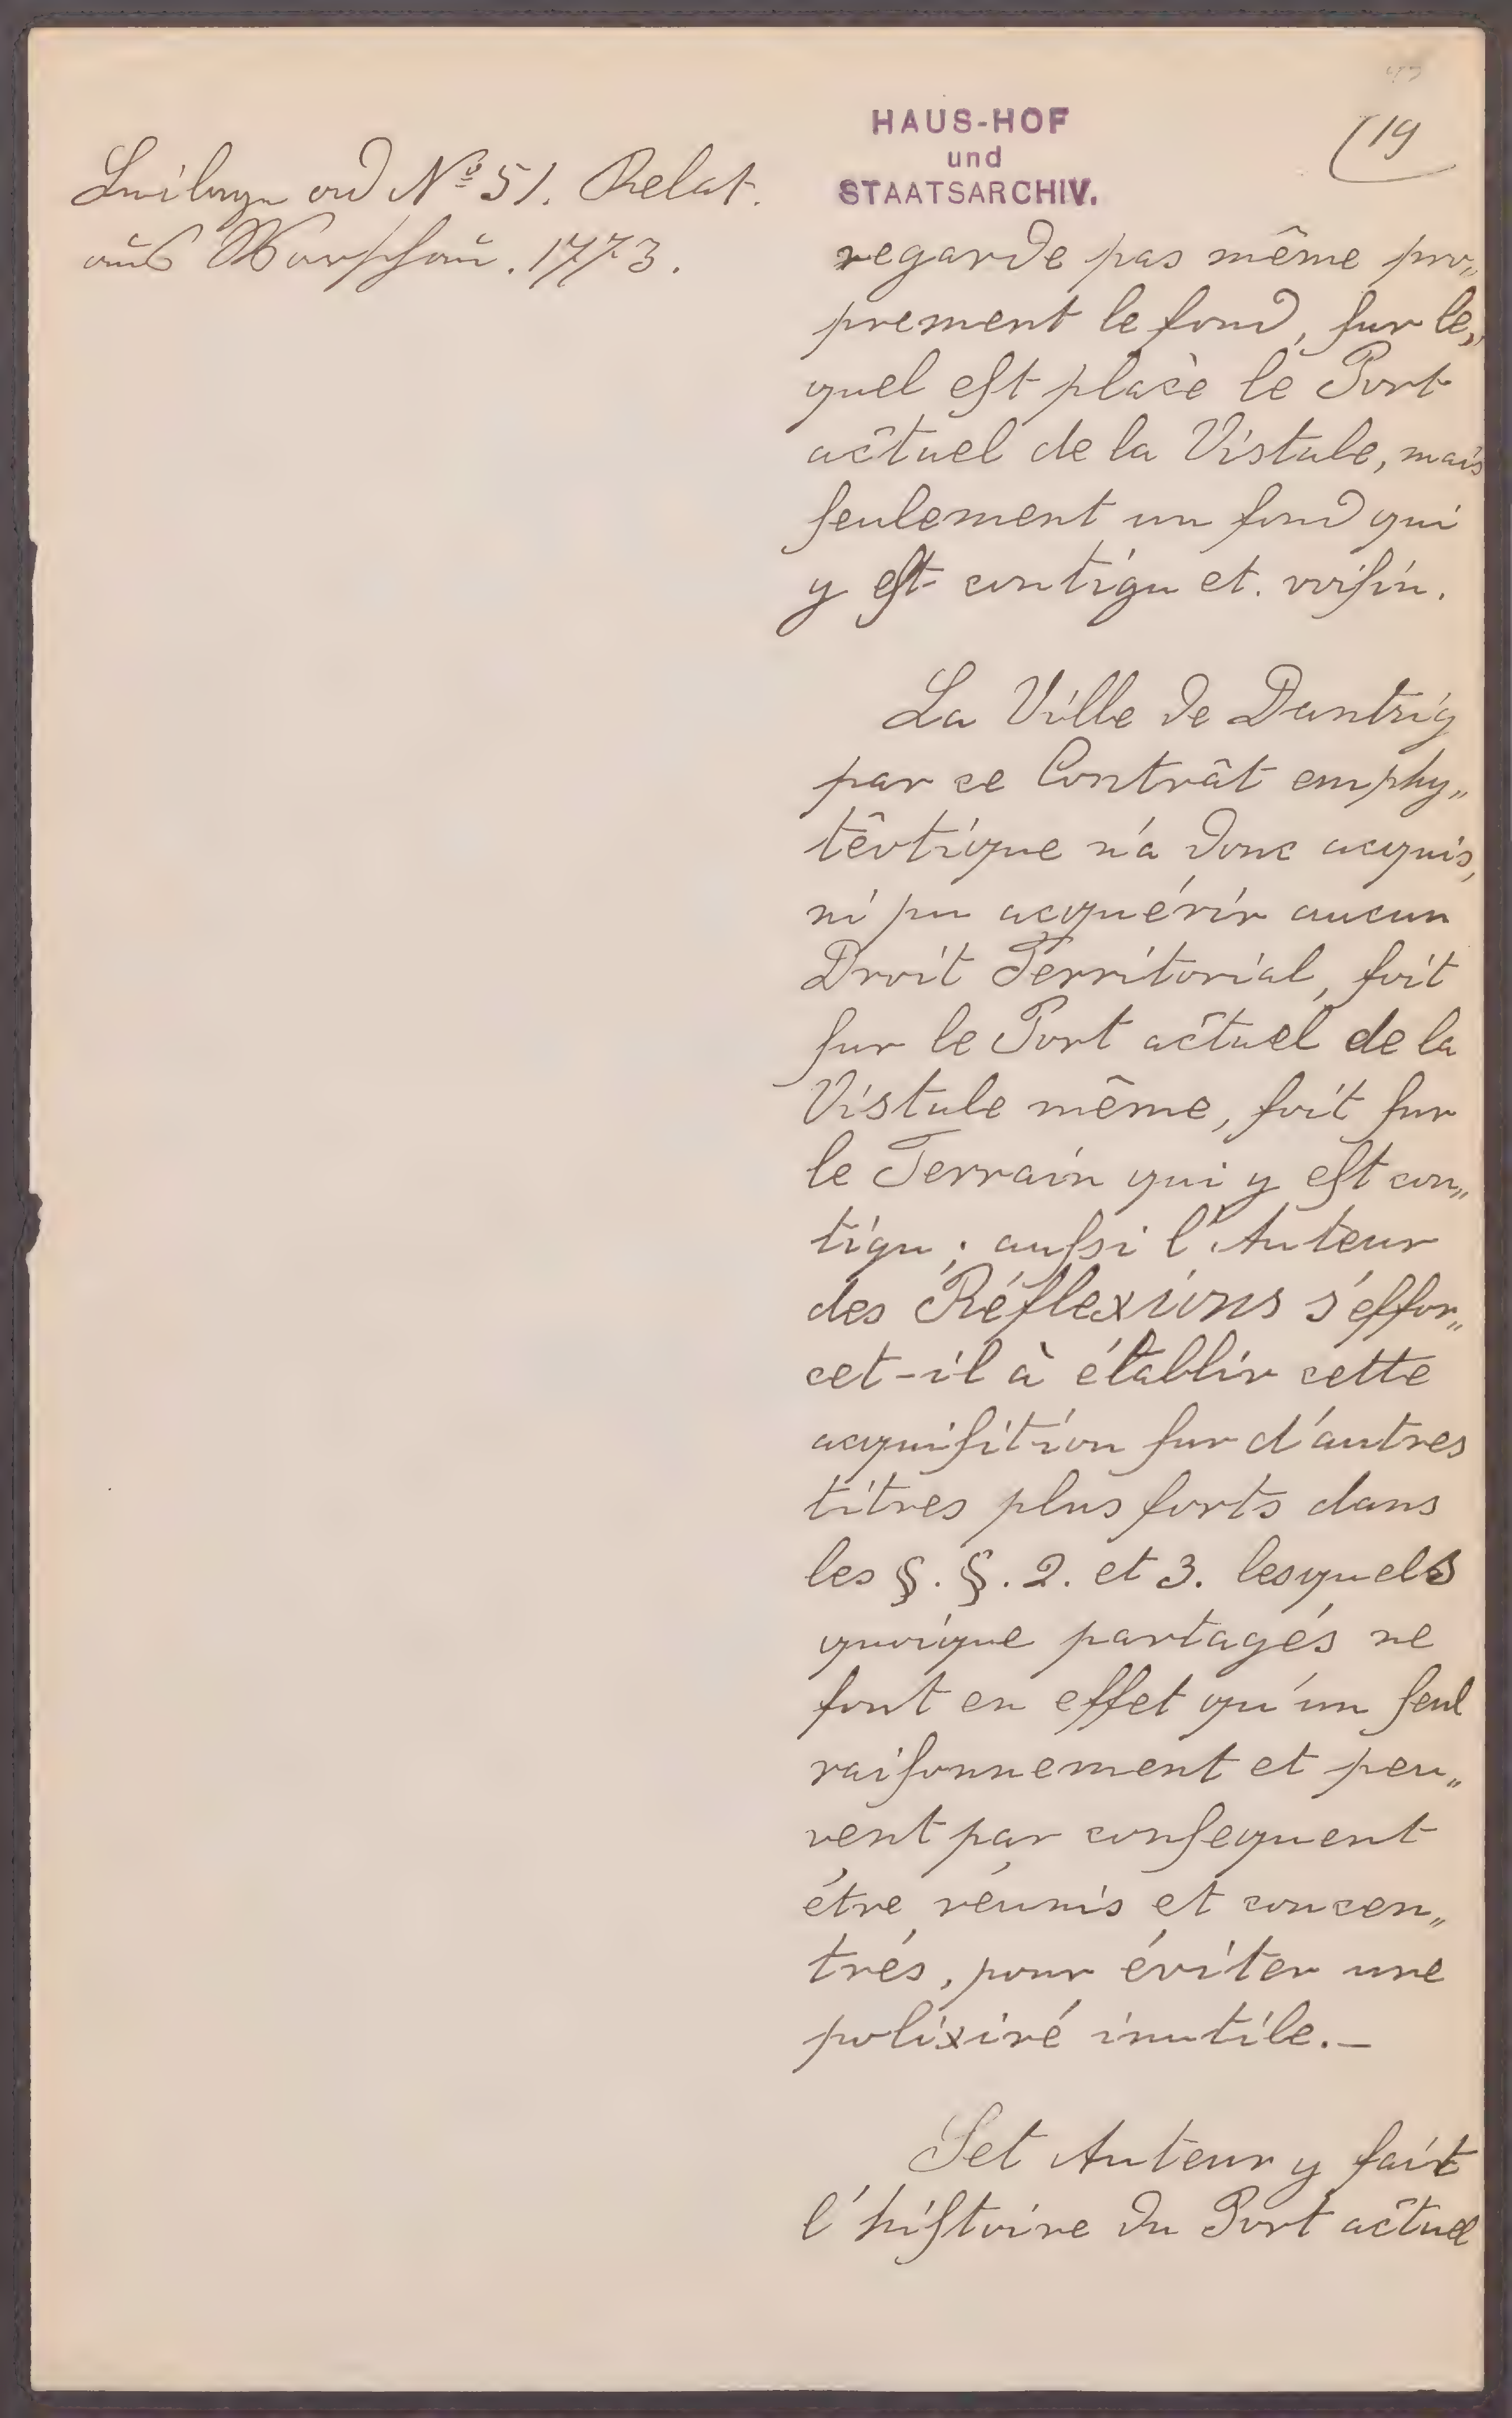 HAUS-HOF
und
STAATSARCHIV.
19
Beilage ad Nº 51. Relat.
aus Warschau. 1773.
regarde pas même pro„
prement le fond, sur le„
quel est placè le Port
actuel de la Vistule, mais
seulement un fond qui
y est contigu et. voisin.
La Ville de Dantzig
par ce Contrât emphy„
têotique n'a donc acquis,
ni pu acquérir aucun
Droit Territorial, soit
sur le Port actuel de la
Vistule même, soit sur
le Terrain qui y est con„
tigu; aussi l'Auteur
des Réflexions s'effor„
cet-il à établir cette
acquisition sur d'autres
titres plus forts dans
les §. §. 2. et 3. lesquels
quoique partagés ne
font en effet qu'un seul
raisonnement et peu„
vent par consequent
étre réunis et concen„
trés, pour éviter une
polixiré inutile.–
Set Auteur y fait
l'histoire du Port actuel